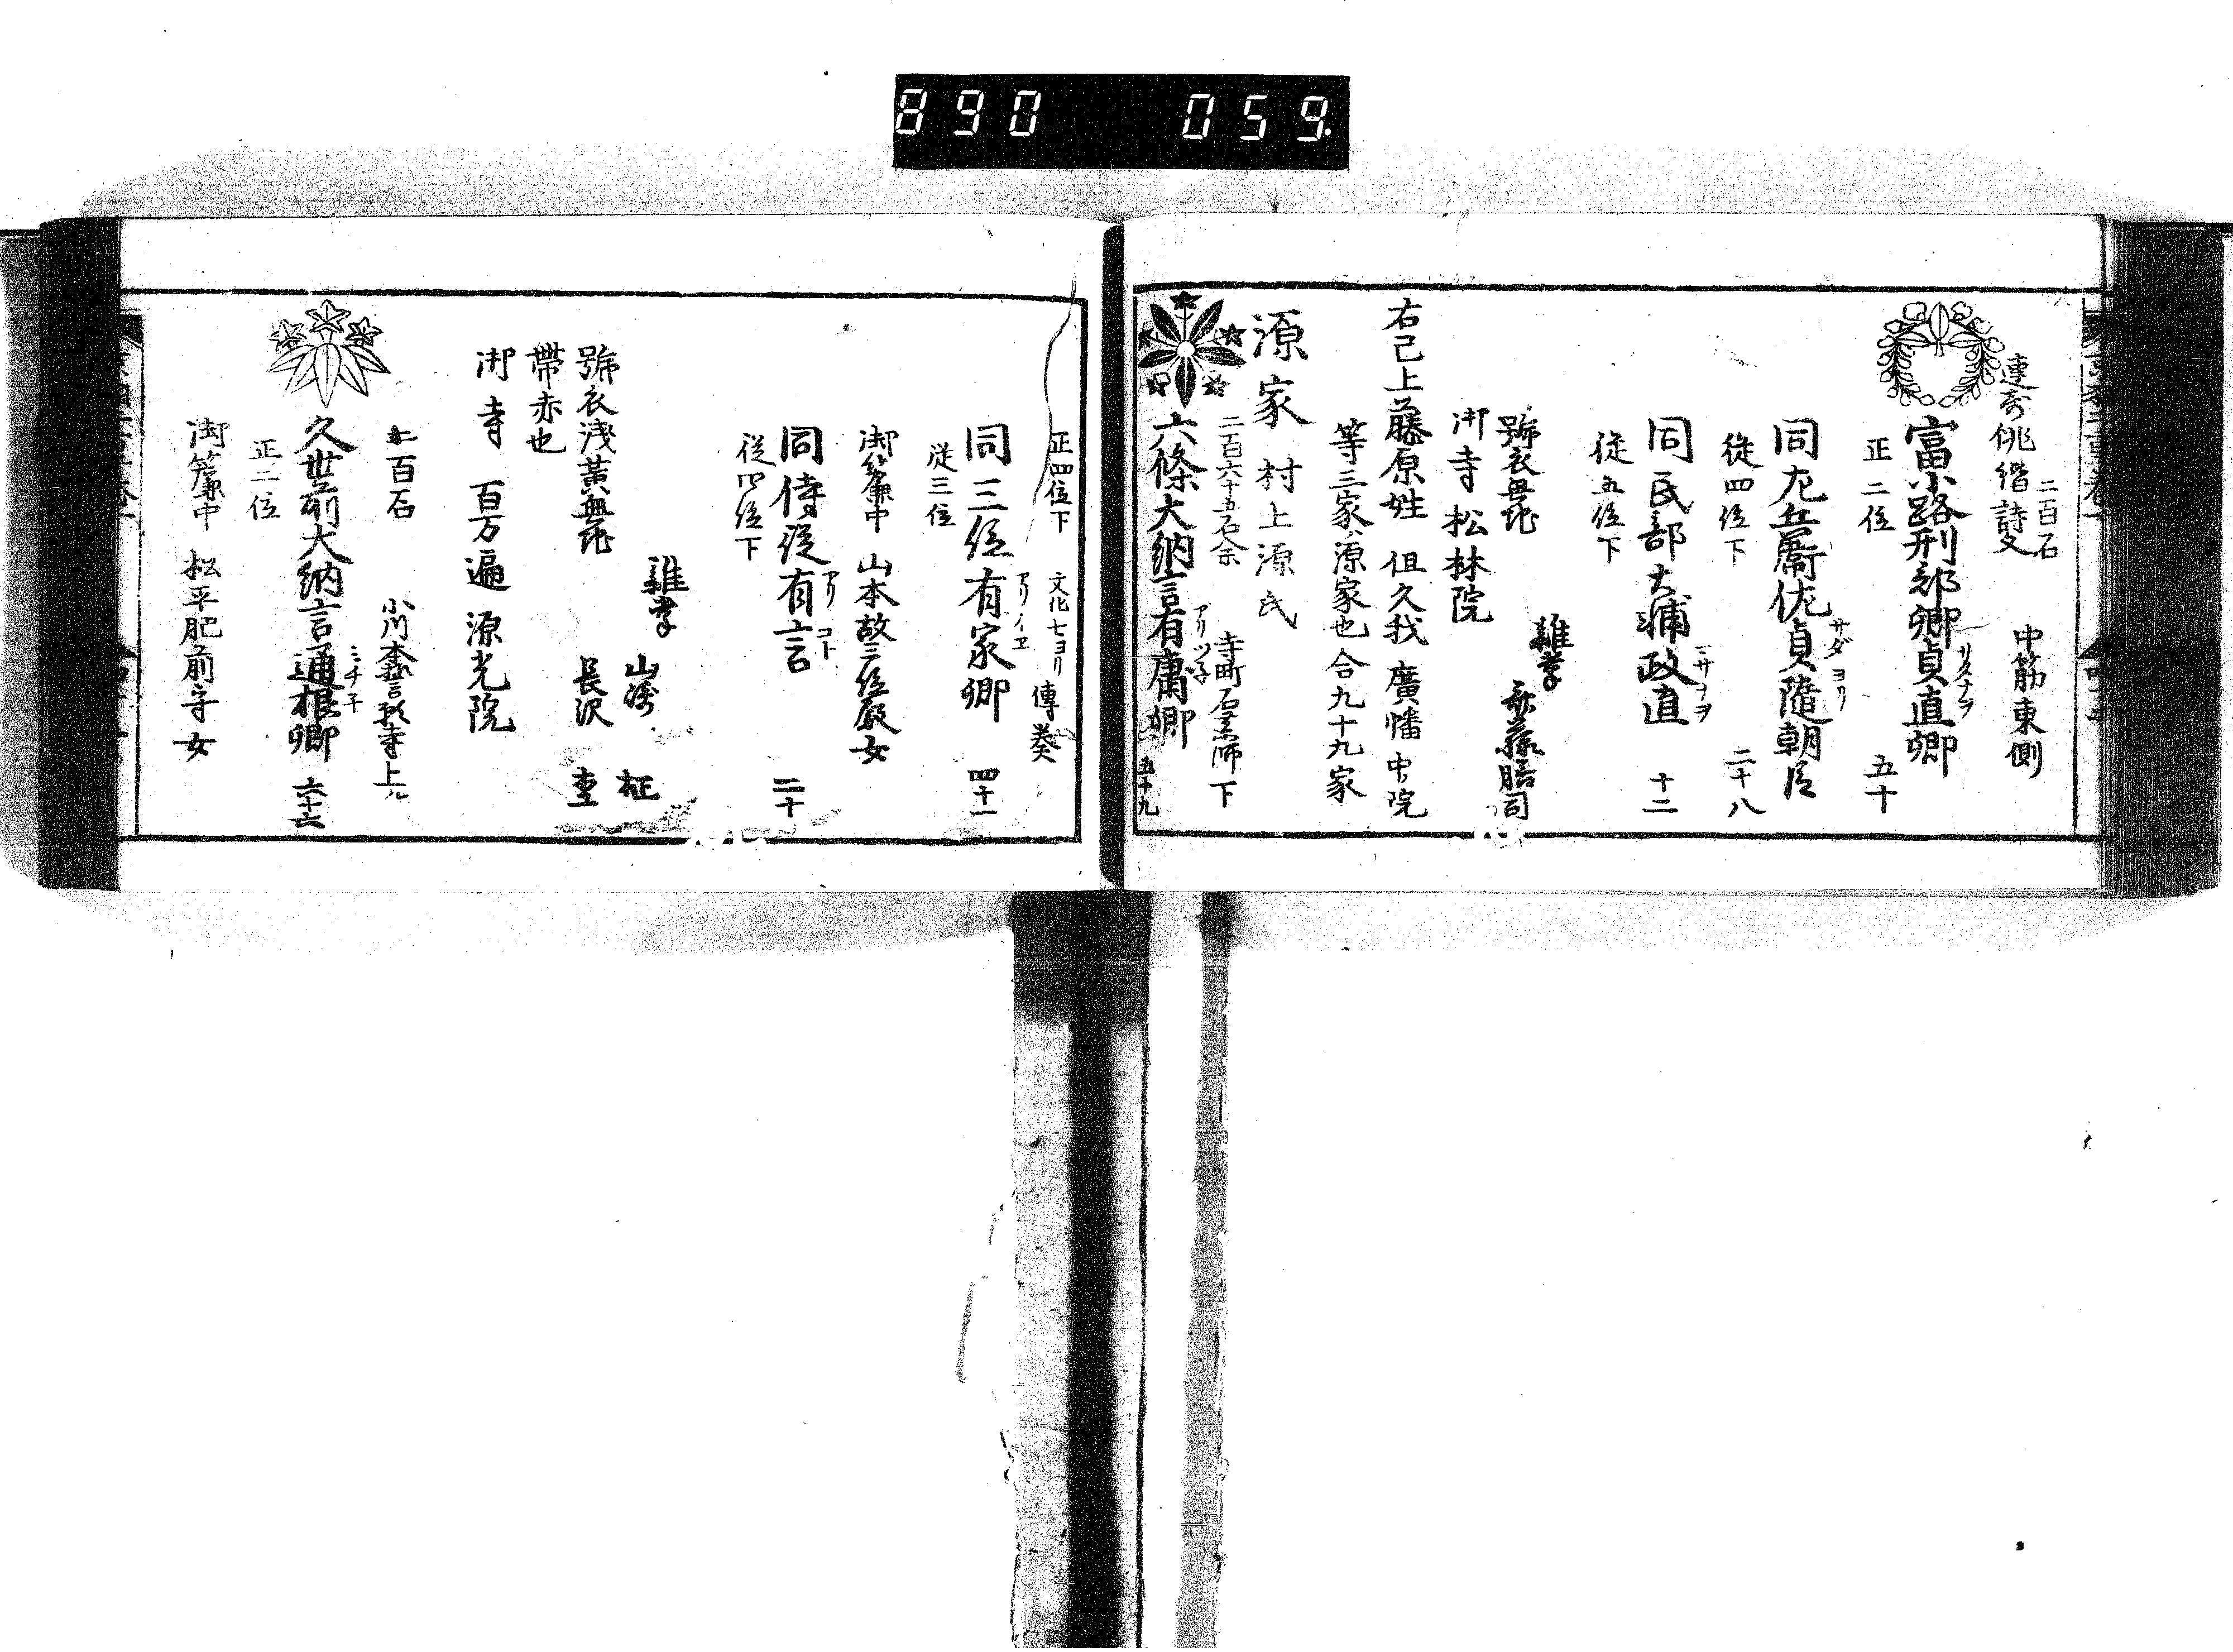 890 059
二百石
連哥俳諧詩文 中筋東側
富小路刑部卿貞直卿 五十
サタナヲ
正二位
同左兵衛佐貞隨朝臣 二十八
サダヨリ
従四位下
同民部大輔政直 十二
マサナヲ
従五位下
雜掌
號衣無花
御寺松林院
右已上藤原姓 但久我 廣幡 中院
等三家ハ源家也 合九十九家
源家 村上源氏
二百六十五石余 寺町石薬師下
六條大納言有庸卿 五十九
アリツ子
正四位下 文化七ヨリ傳奏
同三位有家卿 四十一
アリイヱ
従三位
御簾中 山本故三位殿女
同侍従有言 二十
アリコト
従四位下
雜掌 山崎
號衣浅黄無花 長沢
帶赤也
御寺 百万遍 源光院
二百石 小川本誓願寺上ル
久世前大納言通根卿 六十六
ミチ子
正二位
御簾中 松平肥前守女